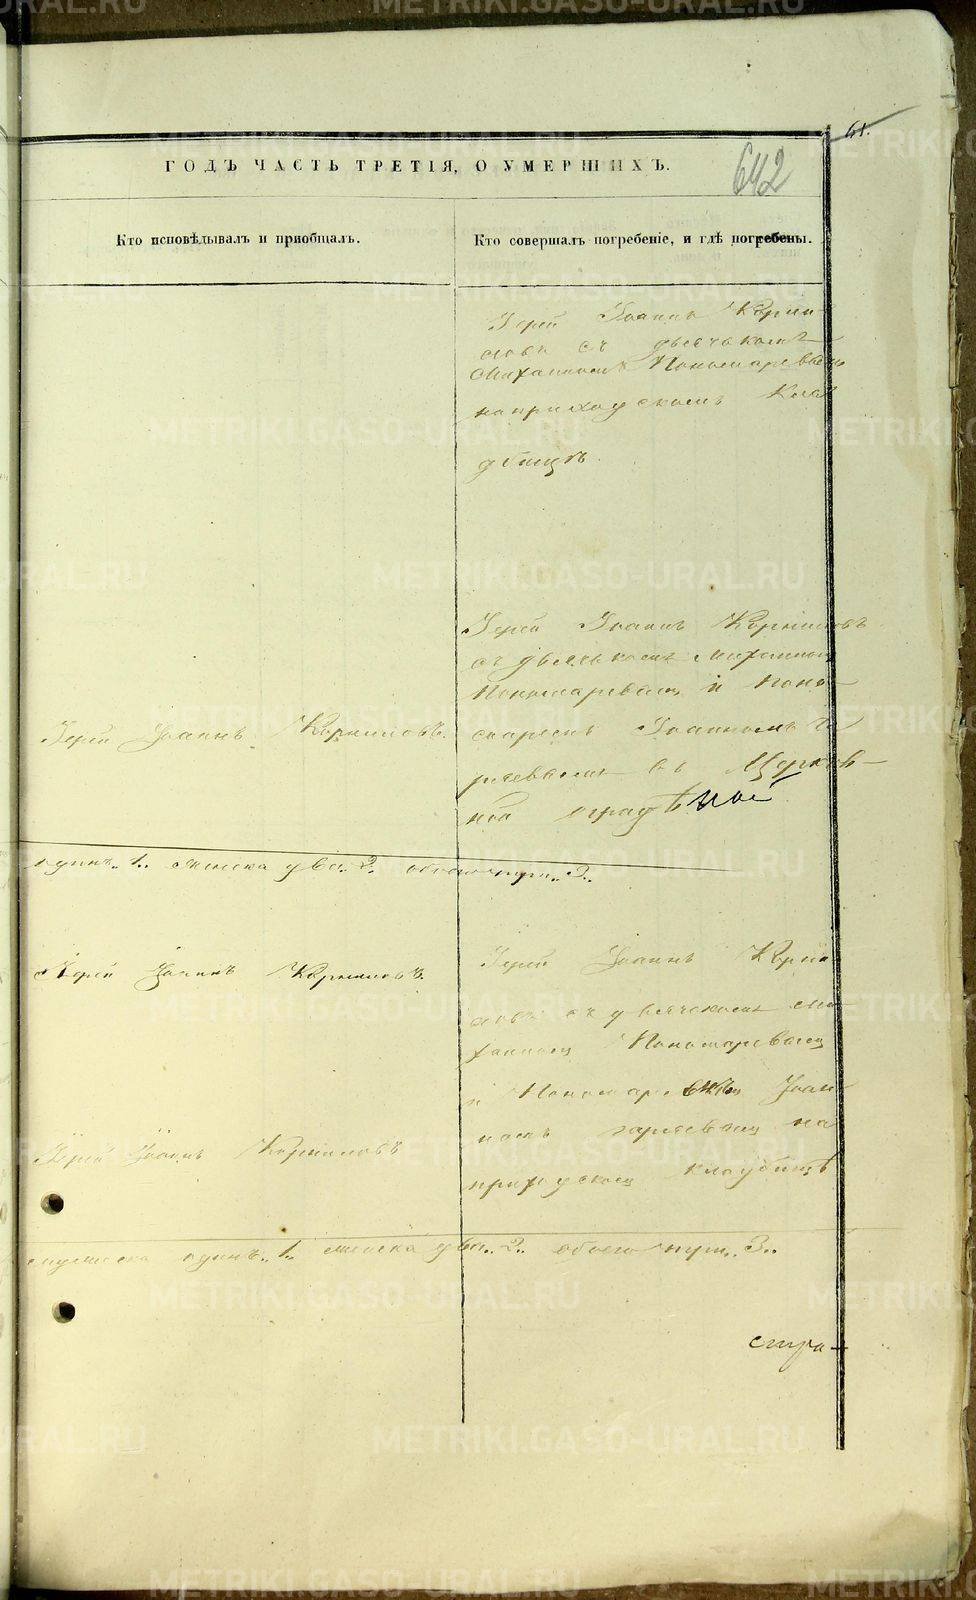 61.
642
ГОДЪ ЧАСТЬ ТРЕТІЯ, О УМЕРШИХЪ.
Кто исповѣдывалъ и приобщалъ.
Кто совершалъ погребеніе, и гдѣ погребены.
Іерей Іоаннъ Корни
ловъ съ дьячькомъ
Михаиломъ Пономаревымъ
на приходскомъ Кла
дбищѣ.
Іерей Іоаннъ Корниловъ.
Іерей Іоаннъ Корниловъ
съ дьячькомъ Михаиломъ
Пономаревымъ и Поно
маремъ Іоанномъ
в Церков
ной оградѣ
одинъ.. 1.. женска два.. 2.. обоего 3..
Іерей Іоаннъ Корниловъ.
Іерей Іоаннъ Корни
ловъ съ дьячькомъ Ми
хаиломъ Пономаревымъ
и Пономаремъ Іоан
номъ на
приходскомъ кладбищѣ
Іерей Іоаннъ Корниловъ
мужеска одинъ.. 1.. женска два.. 2.. обоего 3..
стра
METRIKI.GASO-URAL.RU